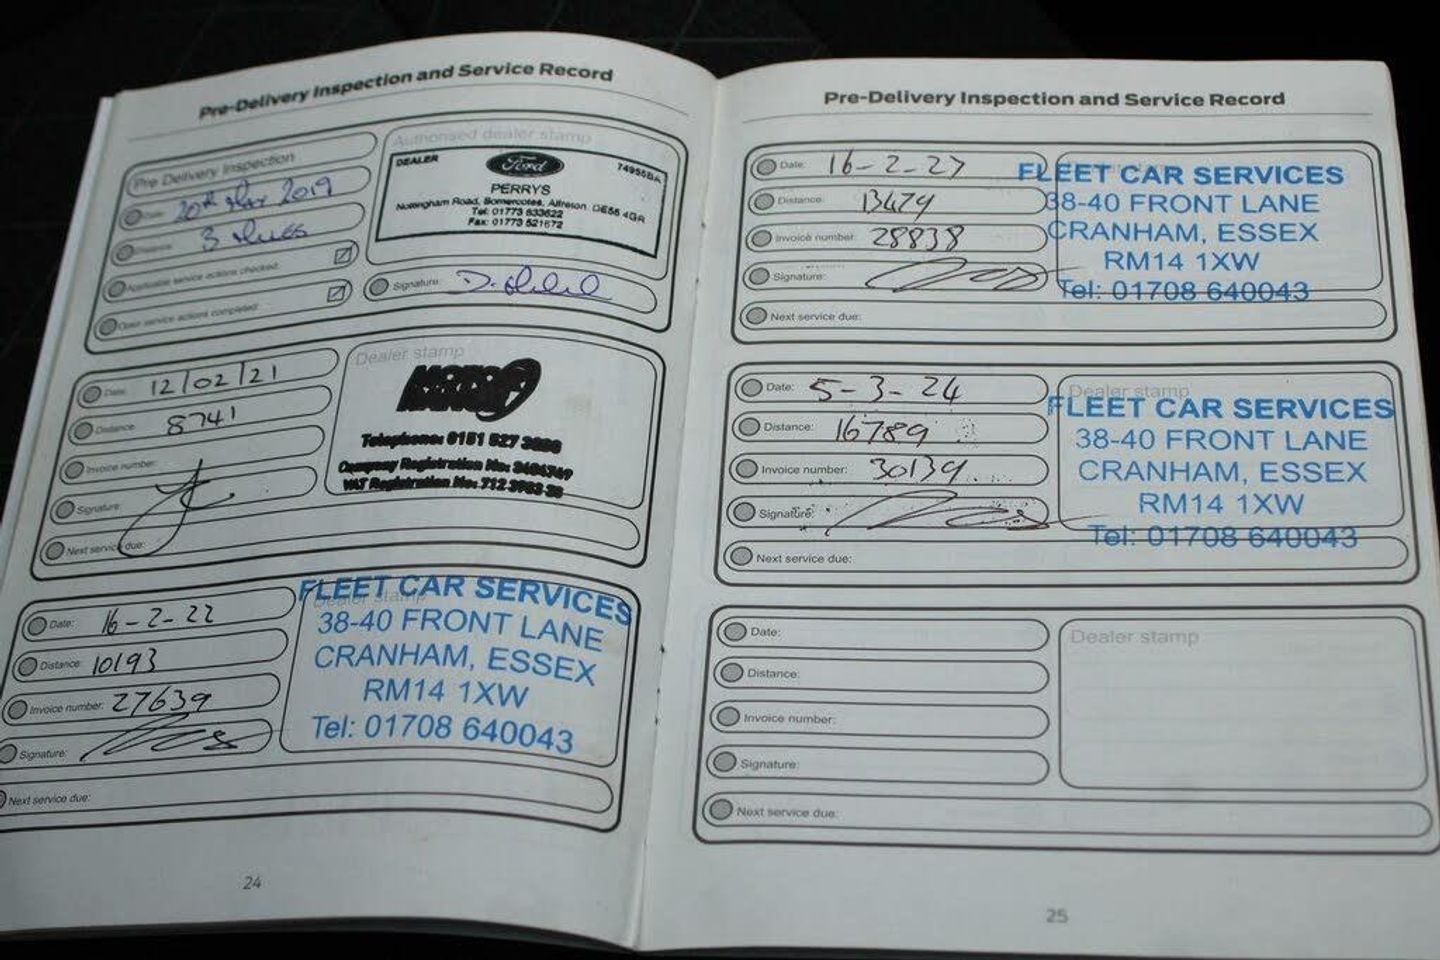 Pre-Delivery Inspection and Service Record
Pre Delivery Inspection
Date: 20th 2019
Distance: 3
Applicable service actions checked:
Open service actions completed:
Authorised dealer stamp
DEALER Ford 74955BA
PERRYS
Nottingham Road, Somercotes, Alfreton. DE55 4GR
Tel: 01773 833622
Fax: 01773 521672
Signature:
Date: 12/02/21
Distance: 8741
Invoice number:
Signature:
Next service due:
Dealer stamp
Telephone: 0151 527
Company Registration No:
VAT Registration No: 712
Date: 16-2-22
Distance: 10193
Invoice number: 27639
Signature:
Next service due:
Dealer stamp
FLEET CAR SERVICES
38-40 FRONT LANE
CRANHAM, ESSEX
RM14 1XW
Tel: 01708 640043
24
Pre-Delivery Inspection and Service Record
Date: 16-2-23
Distance: 13479
Invoice number: 28838
Signature:
Next service due:
FLEET CAR SERVICES
38-40 FRONT LANE
CRANHAM, ESSEX
RM14 1XW
Tel: 01708 640043
Date: 5-3-24
Distance: 16789
Invoice number: 30139
Signature:
Next service due:
Dealer stamp
FLEET CAR SERVICES
38-40 FRONT LANE
CRANHAM, ESSEX
RM14 1XW
Tel: 01708 640043
Date:
Distance:
Invoice number:
Signature:
Next service due:
Dealer stamp
25